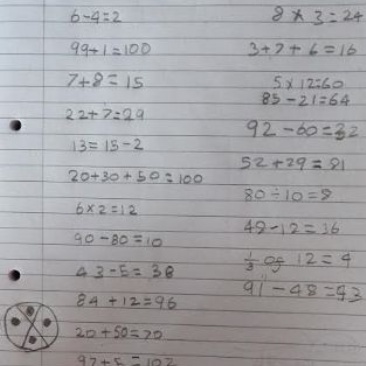 6-4=2
99+1=100
7+8=15
22+7=29
13=15-2
20+30+50=100
6x2=12
90-80=10
43-5=38
84+12=96
20+50=70
97+5=102
8x3=24
3+7+6=16
5x12=60
85-21=64
92-60=32
52+29=81
80÷10=8
48-12=36
1/3 of 12=4
91-48=43